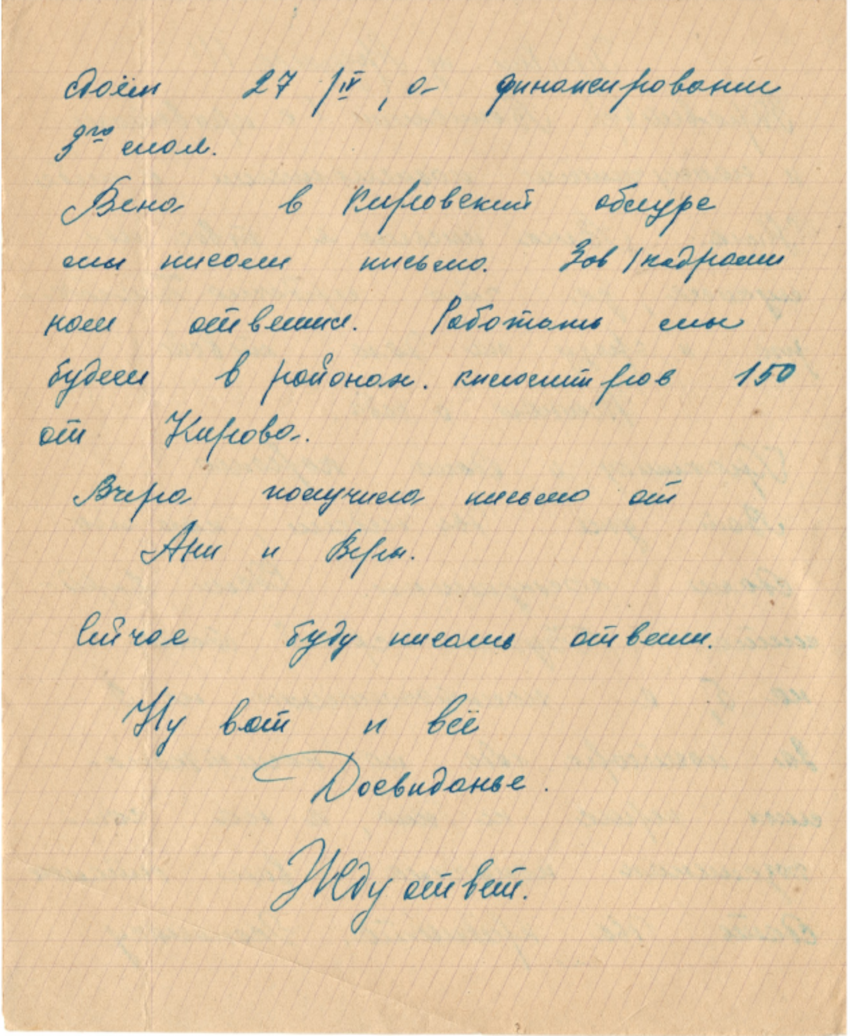 сдаём 27/IV, а финансировании
3го мая.
Вена в Кировский облуре
мы писали письмо. Зав/кадрами
нам ответил. Работать мы
будем в районах. километров 150
от Кирова.
Вчера получила письмо от
Ани и Веры.
Сейчас буду писать ответы.
Ну вот и всё
Досвиданье.
Жду ответ.